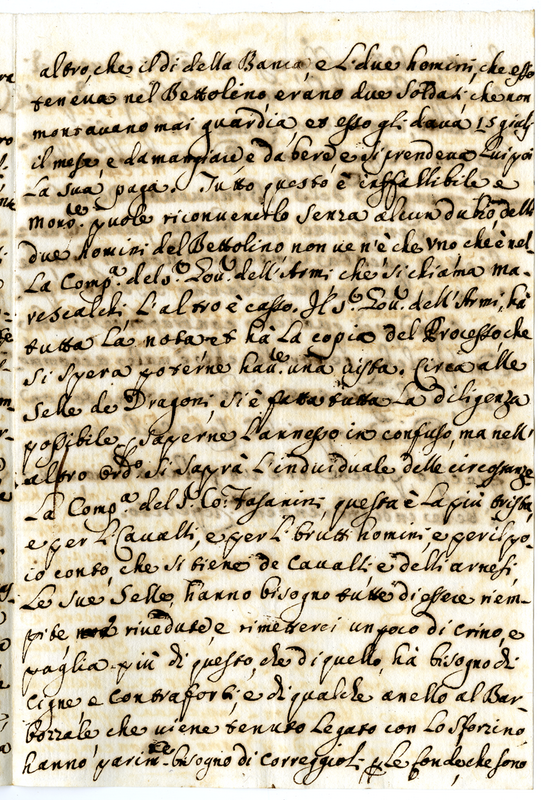 altro, che il di della Banca e L. due homini, che esso
teneua nel Bettolino erano due soldati che non
montauano mai guardia et esso gli daua 15 giuli
il mese e da mangiare e da bere e si prendeua Lui poi
La sua paga. Tutto questo è infallibile e
puole riconuenirlo senza alcun dubio delli
due homini del Bettolino non ue n'è che vno che è nel
La Comp.a del S.r Gou.r dell'Armi che si chiama ma-
rescalchi L'altro è casso, Il S.r Gou.r dell'Armi, hà
tutta La nota et hà La copia del Processo che
si spera poterne hau.e una uista. Circa alle
Selle de Dragoni si è fatta tutta La diligenza
possibile saperne L'annesso in confuso, ma nell'
altro ord.o si saprà L'indiuiduale delle circostanze
La Comp.a del S. Co: Fasanini, questa è La più trista,
e per L. Caualli, e per L. brutti homini e per il po-
co conto, che si tiene de Caualli e delli arnesi,
Le sue Selle, hanno bisogno tutte di essere riem-
pite riuedute, e rimetterci un poco di crino, e
paglia più di questo, che di quello, hà bisogno di
Cigne e contraforti e di qualche anello al Bar-
bozzale che uiene tenuto Legato con Lo sforzino
hanno parim.te bisogno di correggioli p Le fonde che sono